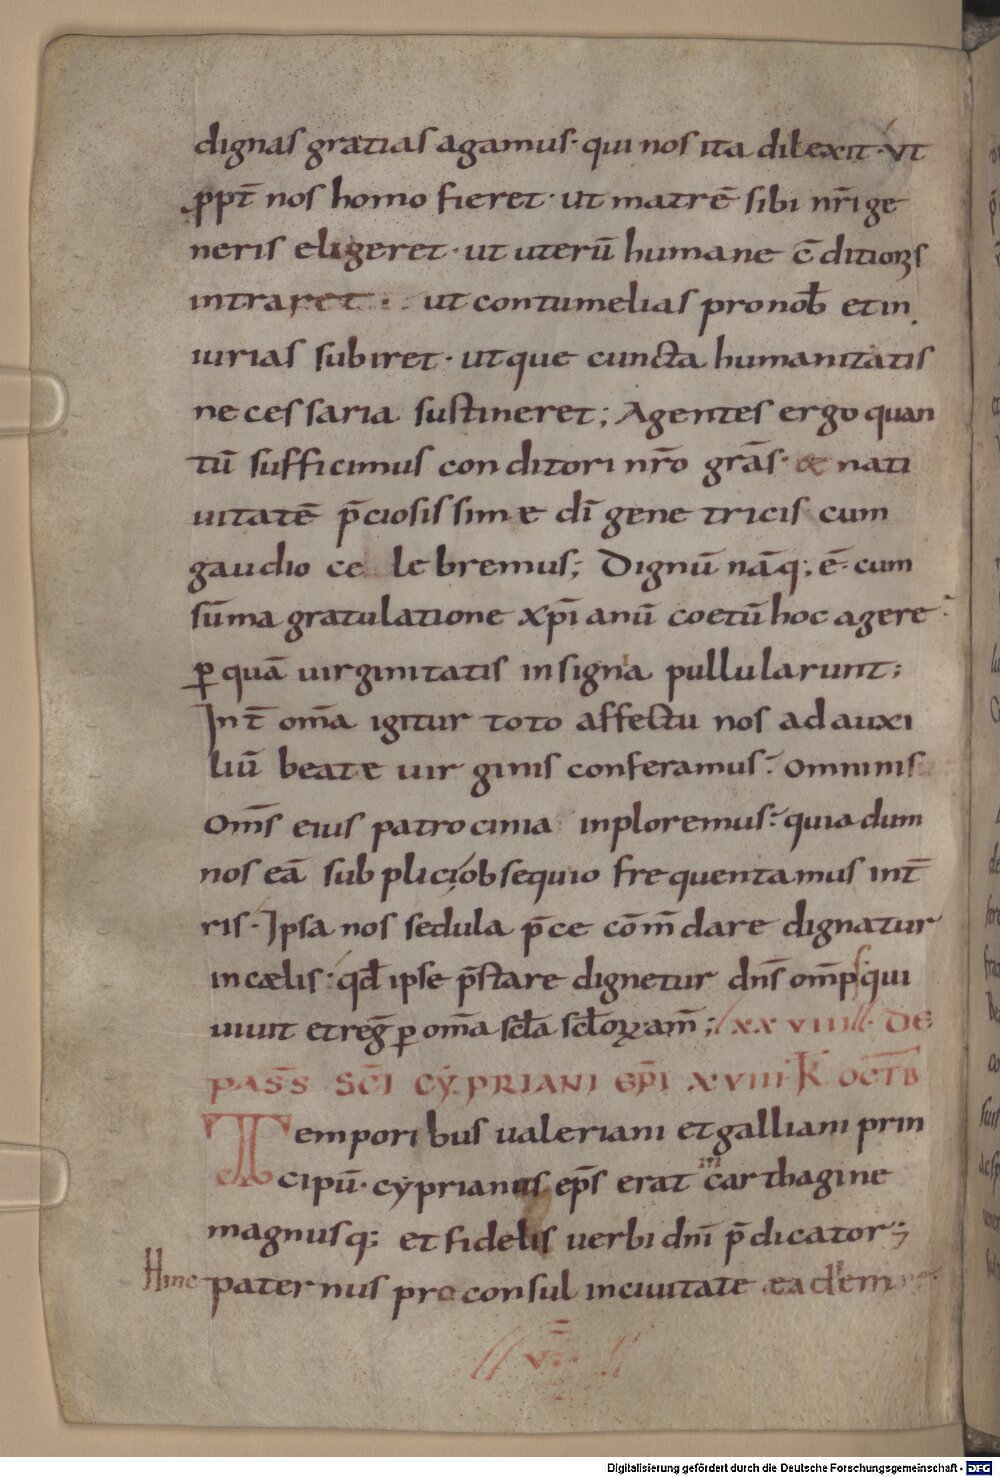 dignas gratias agamus· qui nos ita dilexit· vt
ꝓpt̄ nos homo fieret· ut matrē sibi nr̄i ge
neris eligeret· ut uterū humane c̄ditionis
intraret· ut contumelias pro nob̄ et in
iurias subiret· utque cuncta humanitatis
necessaria sustineret; Agentes ergo quan
tū sufficimus conditori nr̄o gr̄as· & nati
uitatē p̄ciosissime dī genetricis cum
gaudio celebremus; Dignū nāq; ē· cum
sūma gratulatione xp̄ianū coetū hoc agere
ꝑ quā uirginitatis insigna pullularunt;
Int̄ om̄a igitur toto affectu nos ad auxi
liū beate uirginis conferamus· omninis
Om̄s eius patrocinia inploremus· quia dum
nos eā subplici obsequio frequentamus int̄
ris· Ipsa nos sedula p̄ce cōm̄dare dignatur
in cælis· qd̄ ipse p̄stare dignetur dn̄s om̄ps qui
uiuit et reḡ ꝑ om̄a scl̄a scl̄oꝝ am̄; XXVIIII· DE
PASS̄ SC̄I CYPRIANI EP̄I XVIII K̄ OCTB̄
Temporibus ualeriani et galliani prin
cipū· cyprianus ep̄s erat in carthagine
magnusq; et fidelis uerbi dn̄i p̄dicator;
Hinc paternus proconsul in ciuitate eadem